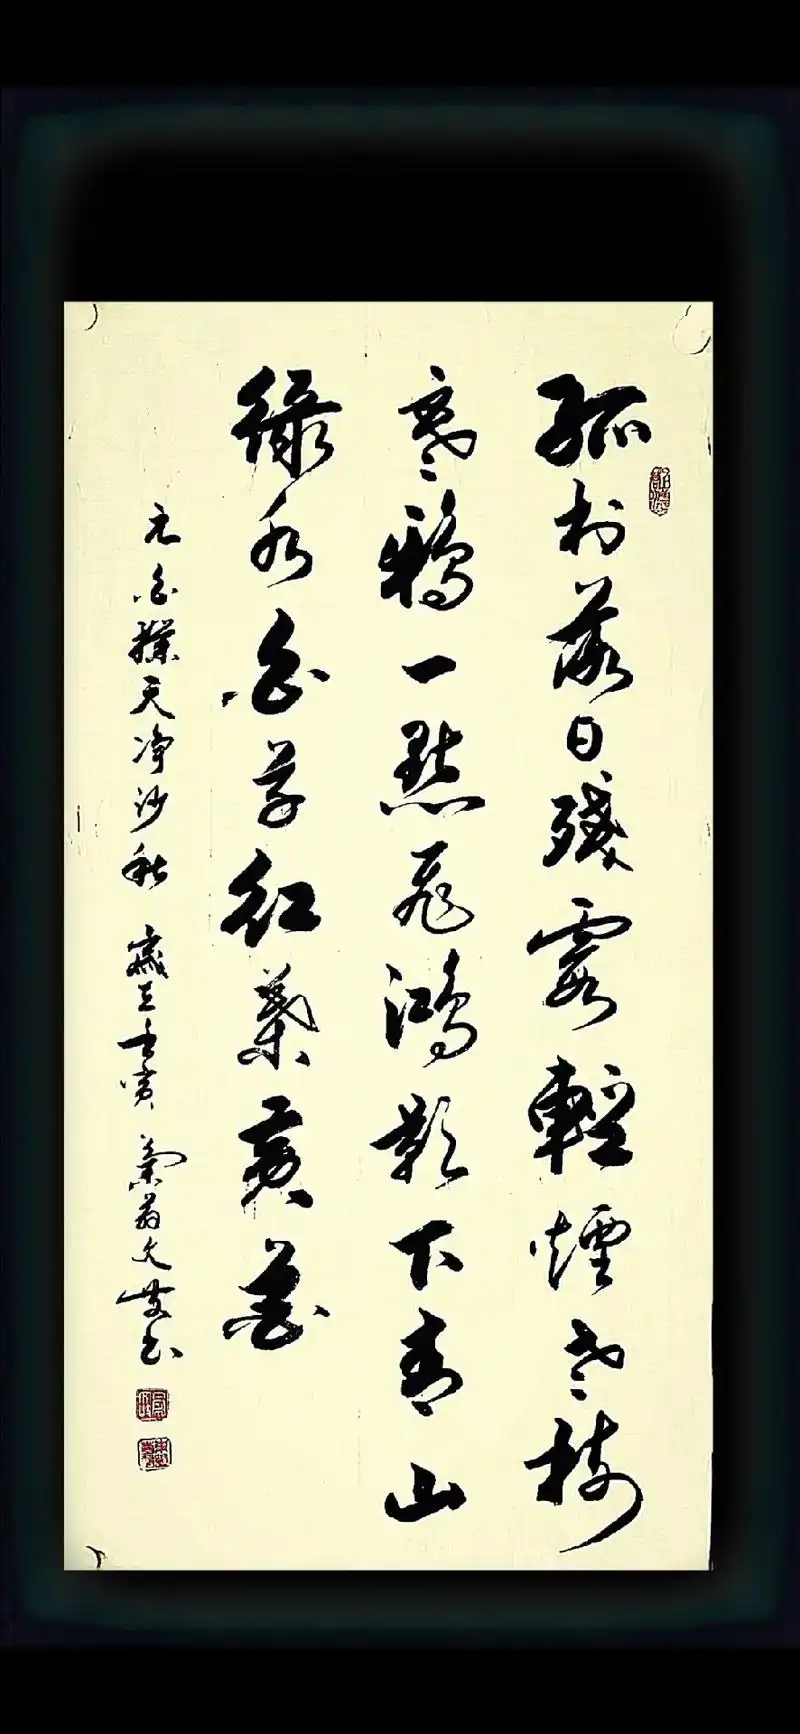 孤村落日殘霞輕煙老樹
寒鴉一點飛鴻影下青山
綠水白草紅葉黃花
元白樸天净沙秋 歲在壬寅 菊翁文安書